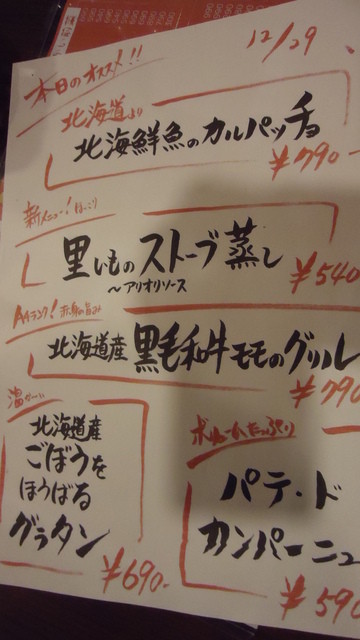 12/29
本日のオススメ!!
北海道より
北海鮮魚のカルパッチョ
¥790-
新メニュー!ほっこり
里いものストーブ蒸し
~アリオリソース
¥540
A4ランク!赤身の旨み
北海道産 黒毛和牛モモのグリル
¥790
温かーい
北海道産
ごぼうを
ほうばる
グラタン
¥690-
ボリュームたっぷり
パテ・ド
カンパーニュ
¥590